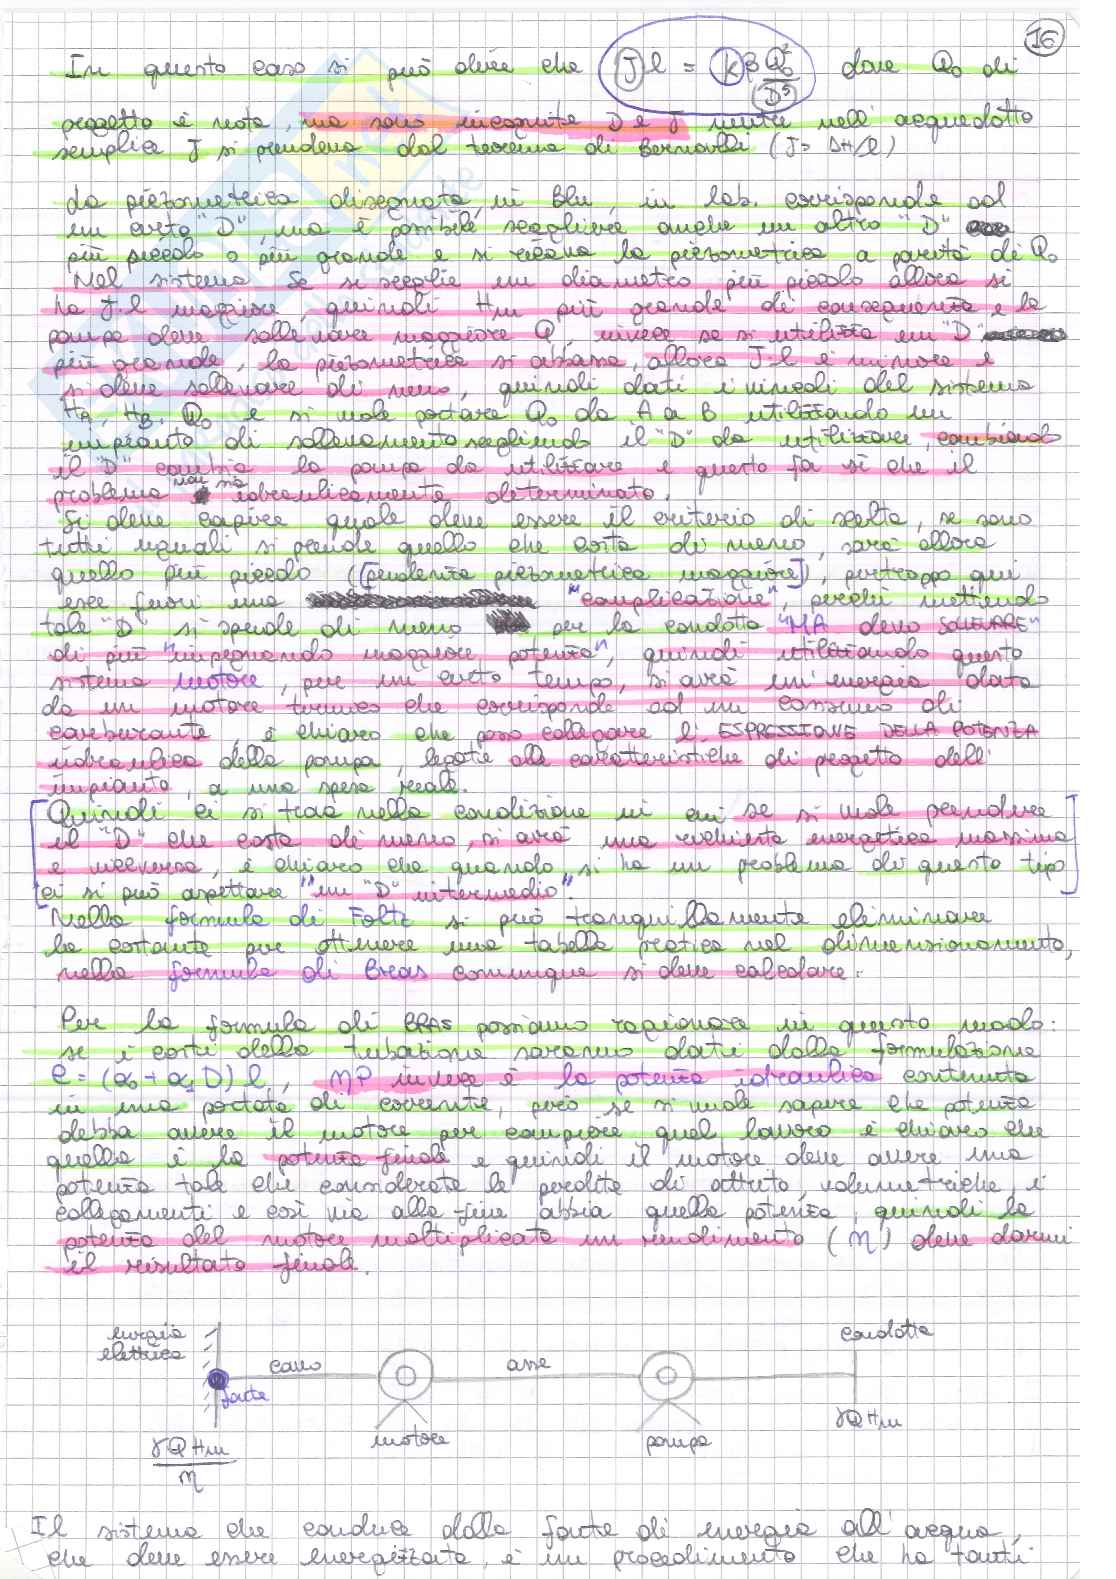 16
In questo caso si può dire che J l = k β Q₀² / D⁵ dove Q₀ di
progetto è nota, ma sono incognite D e J mentre nell'acquedotto
semplice J si prendeva dal teorema di Bernoulli (J = ΔH/l)
La piezometrica disegnata, in Blu, in lab. corrisponde ad
un certo "D", ma è possibile scegliere anche un altro "D"
più piccolo o più grande e si ricava la piezometrica a parità di Q₀
Nel sistema se si sceglie un diametro più piccolo allora si
ha J·l maggiore, quindi Hm più grande di conseguenza e la
pompa deve sollevare maggiore Q, invece se si utilizza un "D"
più grande, la piezometrica si abbassa, allora J·l è minore e
si deve sollevare di meno, quindi dati i vincoli del sistema
HA, HB, Q₀ e si vuole portare Q₀ da A a B utilizzando un
impianto di sollevamento scegliendo il "D" da utilizzare, cambiando
il "D" cambia la pompa da utilizzare e questo fa sì che il
problema non sia idraulicamente determinato.
Si deve capire quale deve essere il criterio di scelta, se sono
tutti uguali si prende quello che costa di meno, sarà allora
quello più piccolo ([pendenza piezometrica maggiore]), purtroppo qui
esce fuori una "complicazione", perché mettendo
tale "D" si spende di meno per la condotta "MA devo SOLLEVARE"
di più "impegnando maggiore potenza", quindi utilizzando questo
sistema motore, per un certo tempo, si avrà un'energia data
da un motore termico che corrisponde ad un consumo di
carburante, è chiaro che posso collegare l'ESPRESSIONE DELLA POTENZA
idraulica della pompa, legata alle caratteristiche di progetto dell'
impianto, a una spesa reale.
Quindi ci si trova nella condizione in cui se si vuole prendere
il "D" che costa di meno, si avrà una richiesta energetica massima
e viceversa, è chiaro che quando si ha un problema di questo tipo
ci si può aspettare "un "D" intermedio".
Nella formula di Foltz si può tranquillamente eliminare
la costante per ottenere una tabella pratica nel dimensionamento,
nella formula di Bress comunque si deve calcolare.
Per la formula di BRAS possiamo ragionare in questo modo:
se i costi della tubazione saranno dati dalla formulazione
C = (α₀ + α₁ D) l, ηP invece è la potenza idraulica contenuta
in una portata di corrente, però se si vuole sapere che potenza
debba avere il motore per compiere quel lavoro è chiaro che
quella è la potenza finale e quindi il motore deve avere una
potenza tale che considerate le perdite di attrito, volumetriche, i
collegamenti e così via alla fine abbia quella potenza, quindi la
potenza del motore moltiplicata un rendimento (η) deve darmi
il risultato finale.
energia
elettrica
fonte
cavo
motore
asse
pompa
condotta
γQHm
γQHm
η
Il sistema che conduce dalla fonte di energia all'acqua,
che deve essere energizzata, è un procedimento che ha tanti